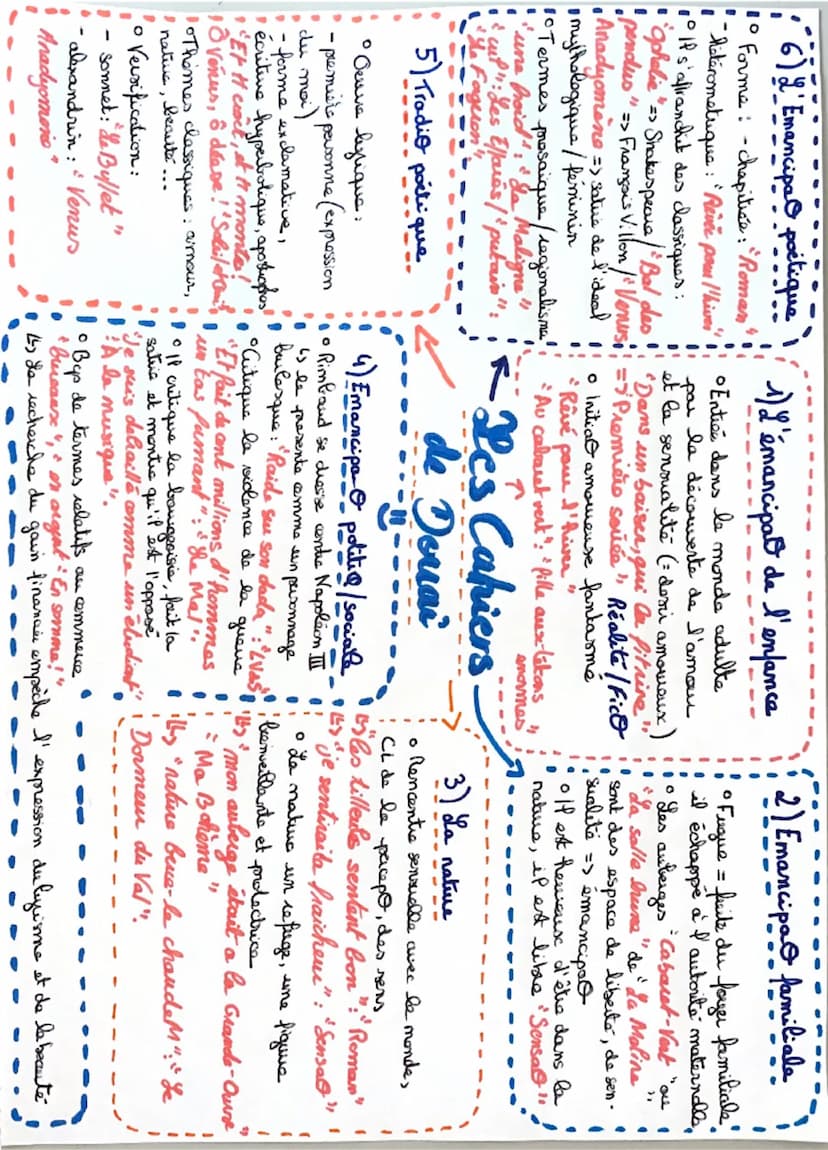 Les Cahiers
de Douai
1) L'émancipaO de l'enfance
o Entrée dans le monde adulte
par la découverte de l'amour
et la sensualité (= demi amoureux)
"Dans un baiser, qui la
=> "Première soirée", Réalité/FicO
o InitiaO amoureuse fantasmé
"Rêvé pour l'hiver"
"Au cabaret vert": "fille aux tétons
énormes"
2) EmancipaO familiale
o Fugue = fuite du foyer familiale
il échappe à l'autorité maternelle
o Les auberges "Cabaret-Vert" ou
"la salle brune" de "La Maline",
sont des espace de liberté, de sen-
sualité => émancipaO
o Il est heureux d'être dans la
nature, il est libre "SensaO"
3) La nature
o Rencontre sensuelle avec le monde,
Cl de la percepO, des sens
↳ "les tilleuls sentent bon": "Roman"
↳ "je sentirai la fraicheur": "SensaO"
o La nature un refuge, une figure
bienveillante et protectrice
↳ "mon auberge était a la Grande-Ourse"
"Ma Bohème"
↳ "nature berce-le chaudemt": "Le
Dormeur du Val".
4) EmancipaO politiq/sociale
o Rimbaud se dresse contre Napoléon III
↳ le présente comme un personnage
burlesque: "Raide sur son dada": "LVdS"
o Critique la violence de la guerre
"Et fait de cent millions d'hommes
un tas fumant": "Le Mal".
o Il critique la bourgeoisie, fait la
satire et montre qu'il est l'opposé
"Je suis débraillé comme un étudiant"
"A la musique".
o Bcp de termes relatifs au commerce
"bureaux", "en argent" "En somme!"
↳ La recherche du gain financié empêche l'expression du lyrisme et de la beauté
5) TradiO poétique
o Oeuvre lyrique:
- première personne (expression
du moi)
- forme exclamative,
écriture hyperbolique, apostrophes
"Et tt croît, et tt monte!
Ô Vénus, ô déesse!" "Soleil et
o Thèmes classiques: amour,
nature, beauté ...
o Versification:
- sonnet: "Le Buffet"
- alexandrin: "Vénus
Anadyomène"
6) L'EmancipaO poétique
o Forme: - chapitrée: "Roman"
- Hétérométrique: "Rêvé pour l'hiver"
o Il s'affranchit des classiques:
"Ophélie" => Shakespeare/ "Bal des
pendus" => François Villon/ "Vénus
Anadyomène => satire de l'idéal
mythologique/féminin
o Termes prosaïque/régionalisme
"une froid": "La Maligne"
"cul": "Les Effarés/ "putain":
"Le Forgeron"